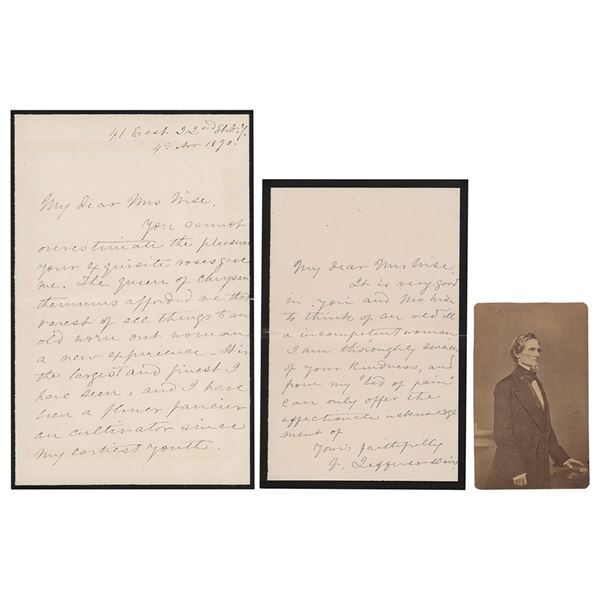 41 East 22nd St. N.Y.
4th Nov 1890.
My dear Mrs Wise,
You cannot
overestimate the pleasure
your exquisite roses gave
me. The queen of chrysan
themums afforded me that
rarest of all things to an
old worn out woman
a new experience. It is
the largest and finest I
have seen, and I have
been a flower fancier
an cultivator since
my earliest youth.
My dear Mrs Wise,
It is very good
in you and Mr Wise
to think of an old ill
& incompetent woman
I am thoroughly sensible
of your kindness, and
from my "bed of pain"
can only offer the
affectionate acknowledge
ment of
Yours faithfully
V. Jefferson Davis